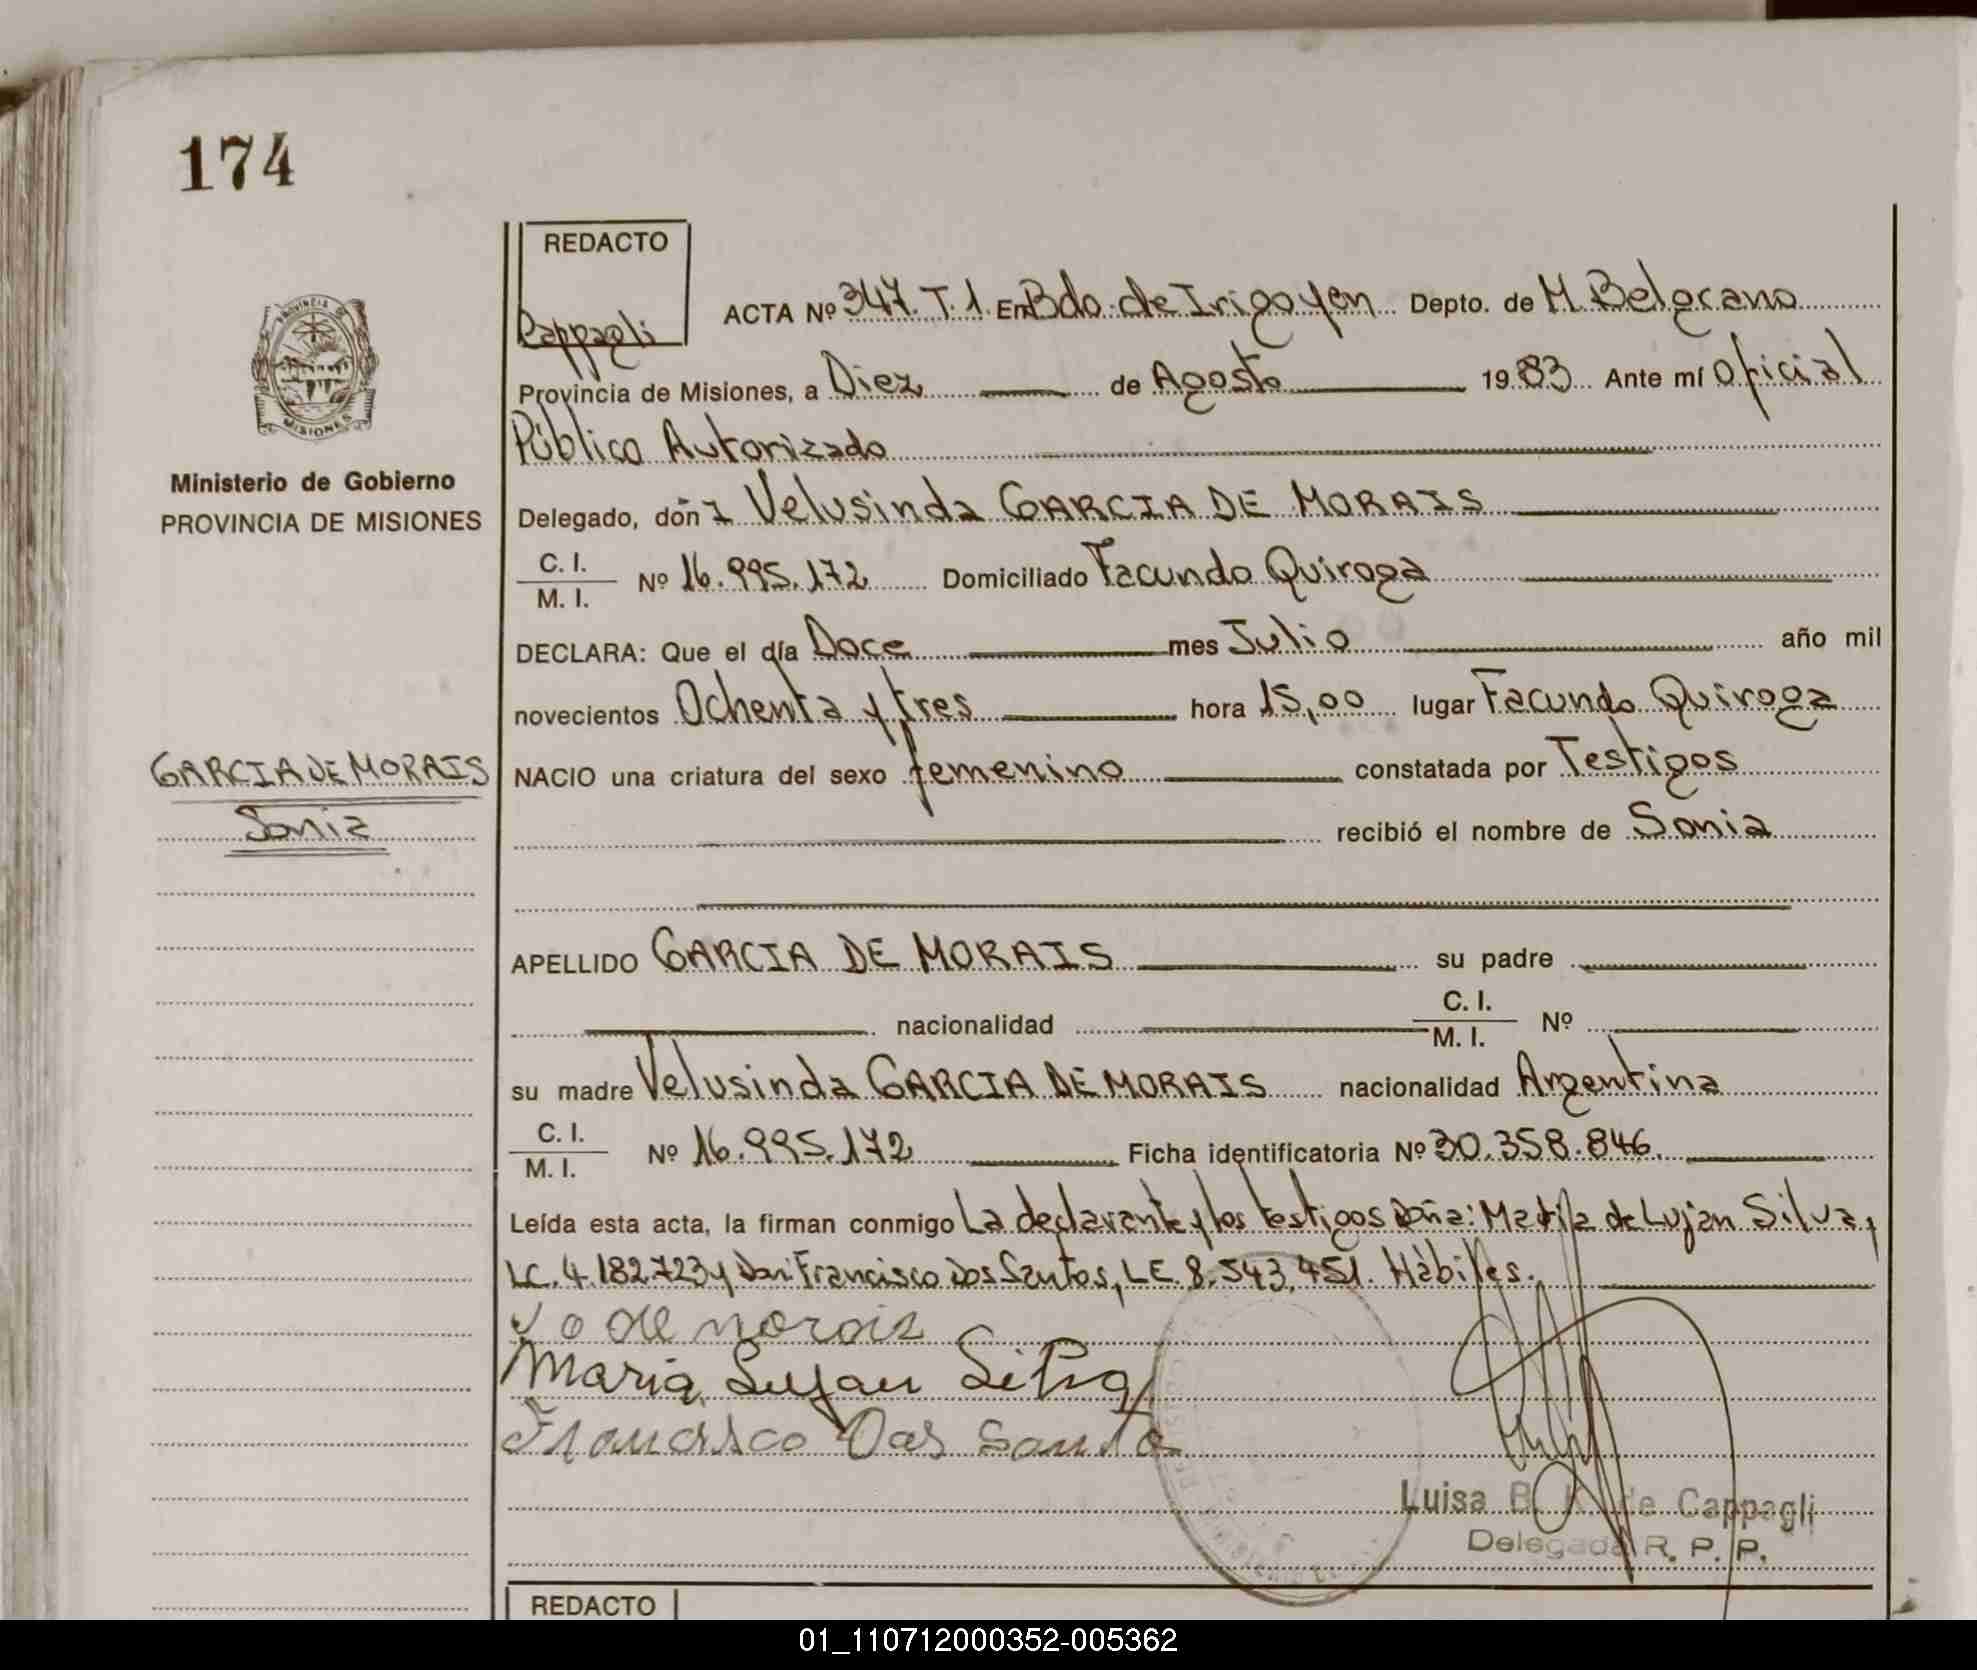 174
REDACTO
Cappagli
PROVINCIA
MISIONES
Ministerio de Gobierno
PROVINCIA DE MISIONES
ACTA Nº 347. T. 1. En Bdo. de Irigoyen Depto. de M. Belgrano
Provincia de Misiones, a Diez de Agosto 1983 Ante mí Oficial
Público Autorizado
Delegado, don a Velusinda GARCIA DE MORAIS
C. I.
M. I. Nº 16.995.172 Domiciliado Facundo Quiroga
DECLARA: Que el día Doce mes Julio año mil
novecientos Ochenta y tres hora 15,00 lugar Facundo Quiroga
GARCIA DE MORAIS
Sonia
NACIO una criatura del sexo femenino constatada por Testigos
recibió el nombre de Sonia
APELLIDO GARCIA DE MORAIS su padre
nacionalidad C. I.
M. I. Nº
su madre Velusinda GARCIA DE MORAIS nacionalidad Argentina
C. I.
M. I. Nº 16.995.172 Ficha identificatoria Nº 30.358.846.
Leída esta acta, la firman conmigo La declarante y los testigos Doña: de Lujan Silva,
LC. 4.182.723 y Don: Francisco Dos Santos, LE. 8.543.451. Hábiles.
de morais
Maria Lujan Silva
Francisco Dos Santo
Luisa B. K. de Cappagli
Delegada R. P. P.
REDACTO
01_110712000352-005362